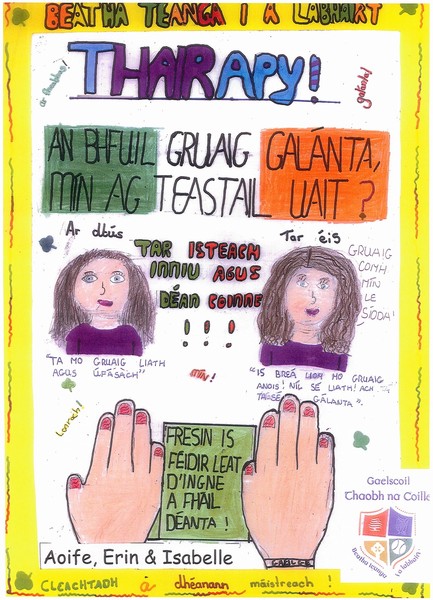 BEATHA TEANGA I A LABHAIRT
THAIRAPY!
ar fheabhas!
galánta!
AN BHFUIL GRUAIG GALÁNTA,
MÍN AG TEASTAIL UAIT?
Ar dtús
TAR ISTEACH
INNIU AGUS
DÉAN COINNE
!!!
Tar éis
GRUAIG
COMH
MÍN
LE
SÍODA!
"TA MO GRUAIG LIATH
AGUS ÚFÁSÀCH"
mín!
"IS BREÁ LIOM MO GRUAIG
ANOIS! NÍL SÉ LIATH! ACH
GÁLANTA".
Lonrach!
FRESIN IS
FÉIDIR LEAT
D'INGNE
A FHÁIL
DÉANTA!
Gaelscoil
Thaobh na Coille
Beatha teanga í a labhairt
Aoife, Erin & Isabelle
CLEACHTADH a dhéanann máistreach!